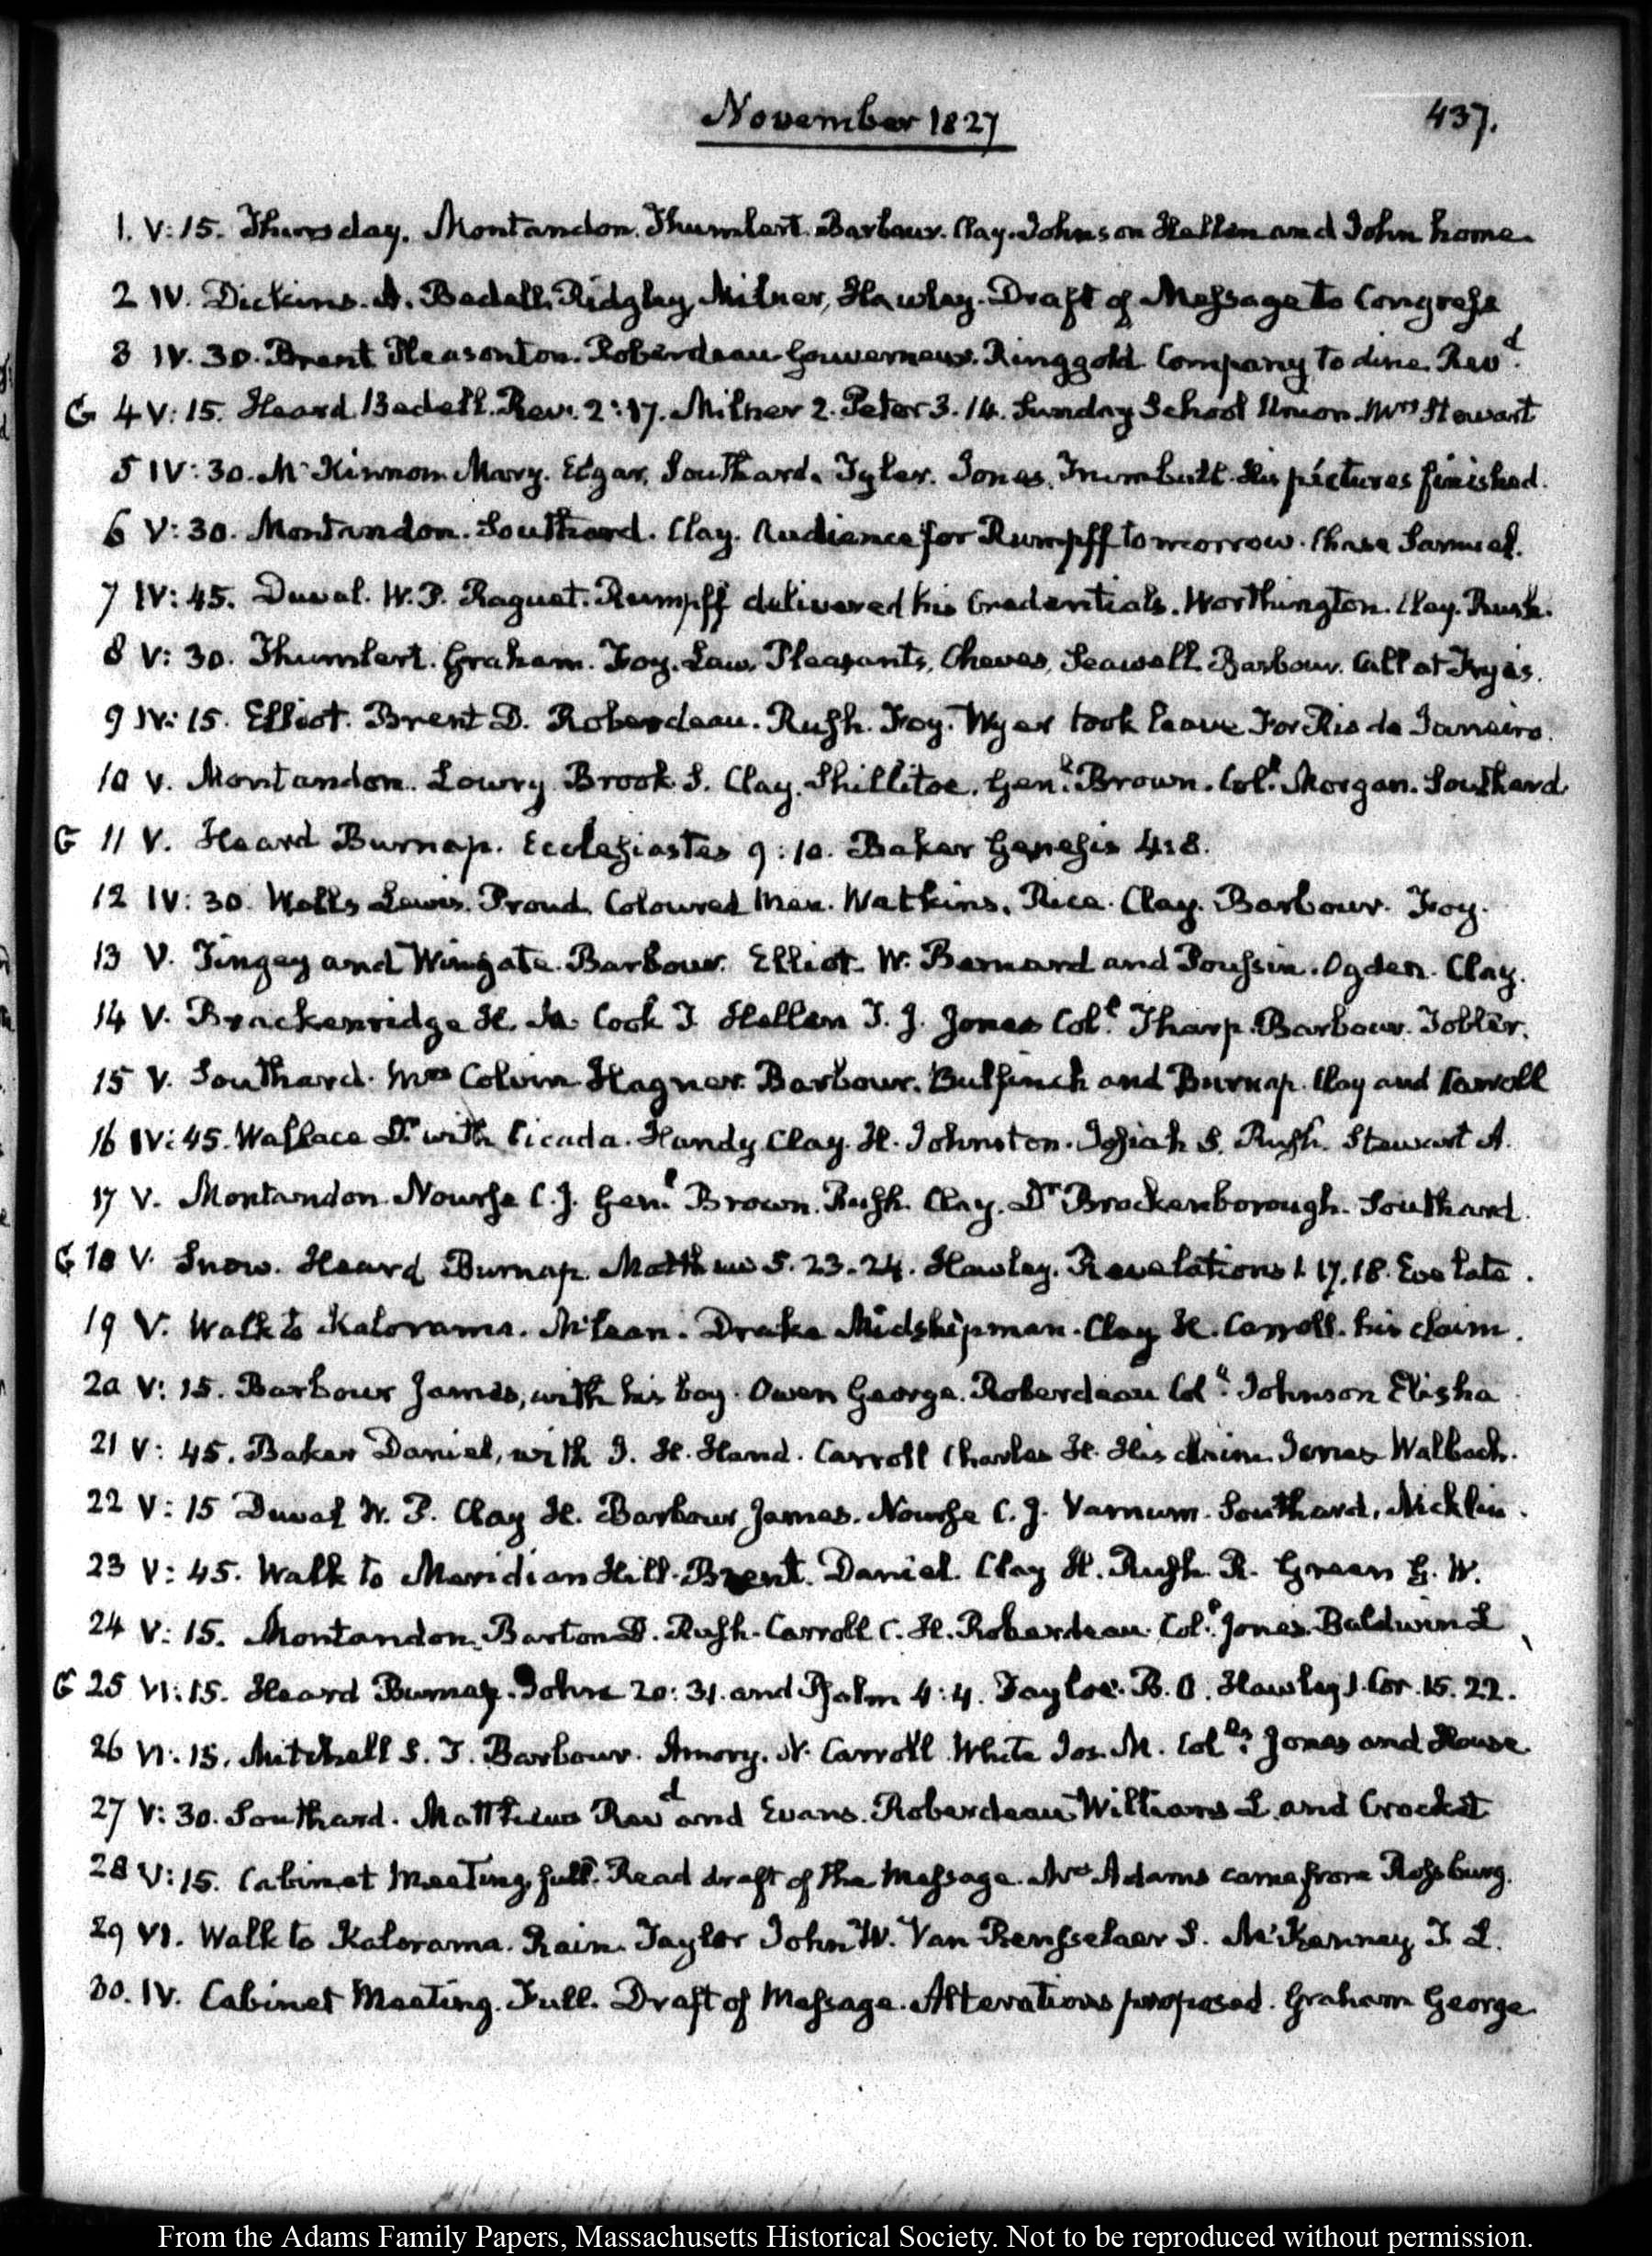 November 1827
437.
1. V:15. Thursday. Montandon. Thumlert. Barbour. Clay. Johnson Hellen and John home.
2 IV. Dickins. A. Bedell. Ridgley, Milner, Hawley. Draft of Message to Congress
3 IV. 30. Brent Pleasonton. Roberdeau Gouverneur. Ringgold. Company to dine. Revd.
G 4 V:15. Heard Bedell. Rev. 2:17. Milner 2. Peter 3.14. Sunday School Union. Mrs Stewart
5 IV:30. McKinnom Mary. Edgar, Southard. Tyler. Jones. Trumbull. His pictures finished.
6 V:30. Montandon. Southard. Clay. Audience for Rumpff tomorrow. Chase Samuel.
7 IV:45. Duval. W. P. Raguet. Rumpff delivered his Credentials. Worthington. Clay. Rush.
8 V:30. Thumlert. Graham. Foy. Law. Pleasants, Cheves, Seawell. Barbour. Call at Frye's.
9 IV:15. Elliot. Brent D. Roberdeau. Rush. Foy. Wyer took leave For Rio de Janeiro.
10 V. Montandon. Lowry. Brook S. Clay. Shillitoe. Genl. Brown. Coll. Morgan. Southard
G 11 V. Heard Burnap. Ecclesiastes 9:10. Baker Genesis 4:8.
12 IV:30. Wells Lewis. Proud. Coloured Men. Watkins. Rice. Clay. Barbour. Foy.
13 V. Tingey and Wingate. Barbour. Elliot. W. Bernard and Poussin. Ogden. Clay.
14 V. Brackenridge H. M. Cook J Hellen T. J. Jones Coll. Tharp. Barbour. Tobler.
15 V. Southard. Mrs Colvin Hagner. Barbour. Bulfinch and Burnap. Clay and Carroll
16 IV:45. Wallace Dr with Cicada. Handy. Clay. H. Johnston. Josiah S. Rush. Stewart A.
17 V. Montandon Nourse C. J. Genl. Brown. Rush. Clay. Dr Brockenborough. Southard.
G 18 V. Snow. Heard Burnap. Matthew 5. 23-24. Hawley. Revelations 1. 17.18. Eve late.
19 V. Walk to Kalorama. McLean. Drake Midshipman. Clay H. Carroll. his claim.
20 V:15. Barbour James, with his boy. Owen George. Roberdeau Coll. Johnson Elisha
21 V:45. Baker Daniel, with J. H. Hand. Carroll Charles H. His claim. Jones Walbach.
22 V:15 Duval W. P. Clay H. Barbour James. Nourse C. J. Varnum. Southard. Nicklin.
23 V:45. Walk to Meridian Hill. Brent. Daniel. Clay H. Rush R. Green G. W.
24 V:15. Montandon. Barton D. Rush. Carroll C. H. Roberdeau Coll. Jones. Baldwin L
G 25 VI:15. Heard Burnap. John 20:31. and Psalm 4:4. Tayloe. B. O. Hawley 1. Cor. 15. 22.
26 VI:15. Mitchell S. T. Barbour. Amory. N. Carroll. White Jos. M. Colls. Jones and House.
27 V:30. Southard. Matthews Revd and Evans. Roberdeau Williams L. and Crocket
28 V:15. Cabinet Meeting, full. Read draft of the Message. Mrs Adams came from Rossburg.
29 VI. Walk to Kalorama. Rain. Taylor John W. Van Rensselaer S. McKenney T. L.
30. IV. Cabinet Meeting. Full. Draft of Message. Alterations proposed. Graham George
From the Adams Family Papers, Massachusetts Historical Society. Not to be reproduced without permission.